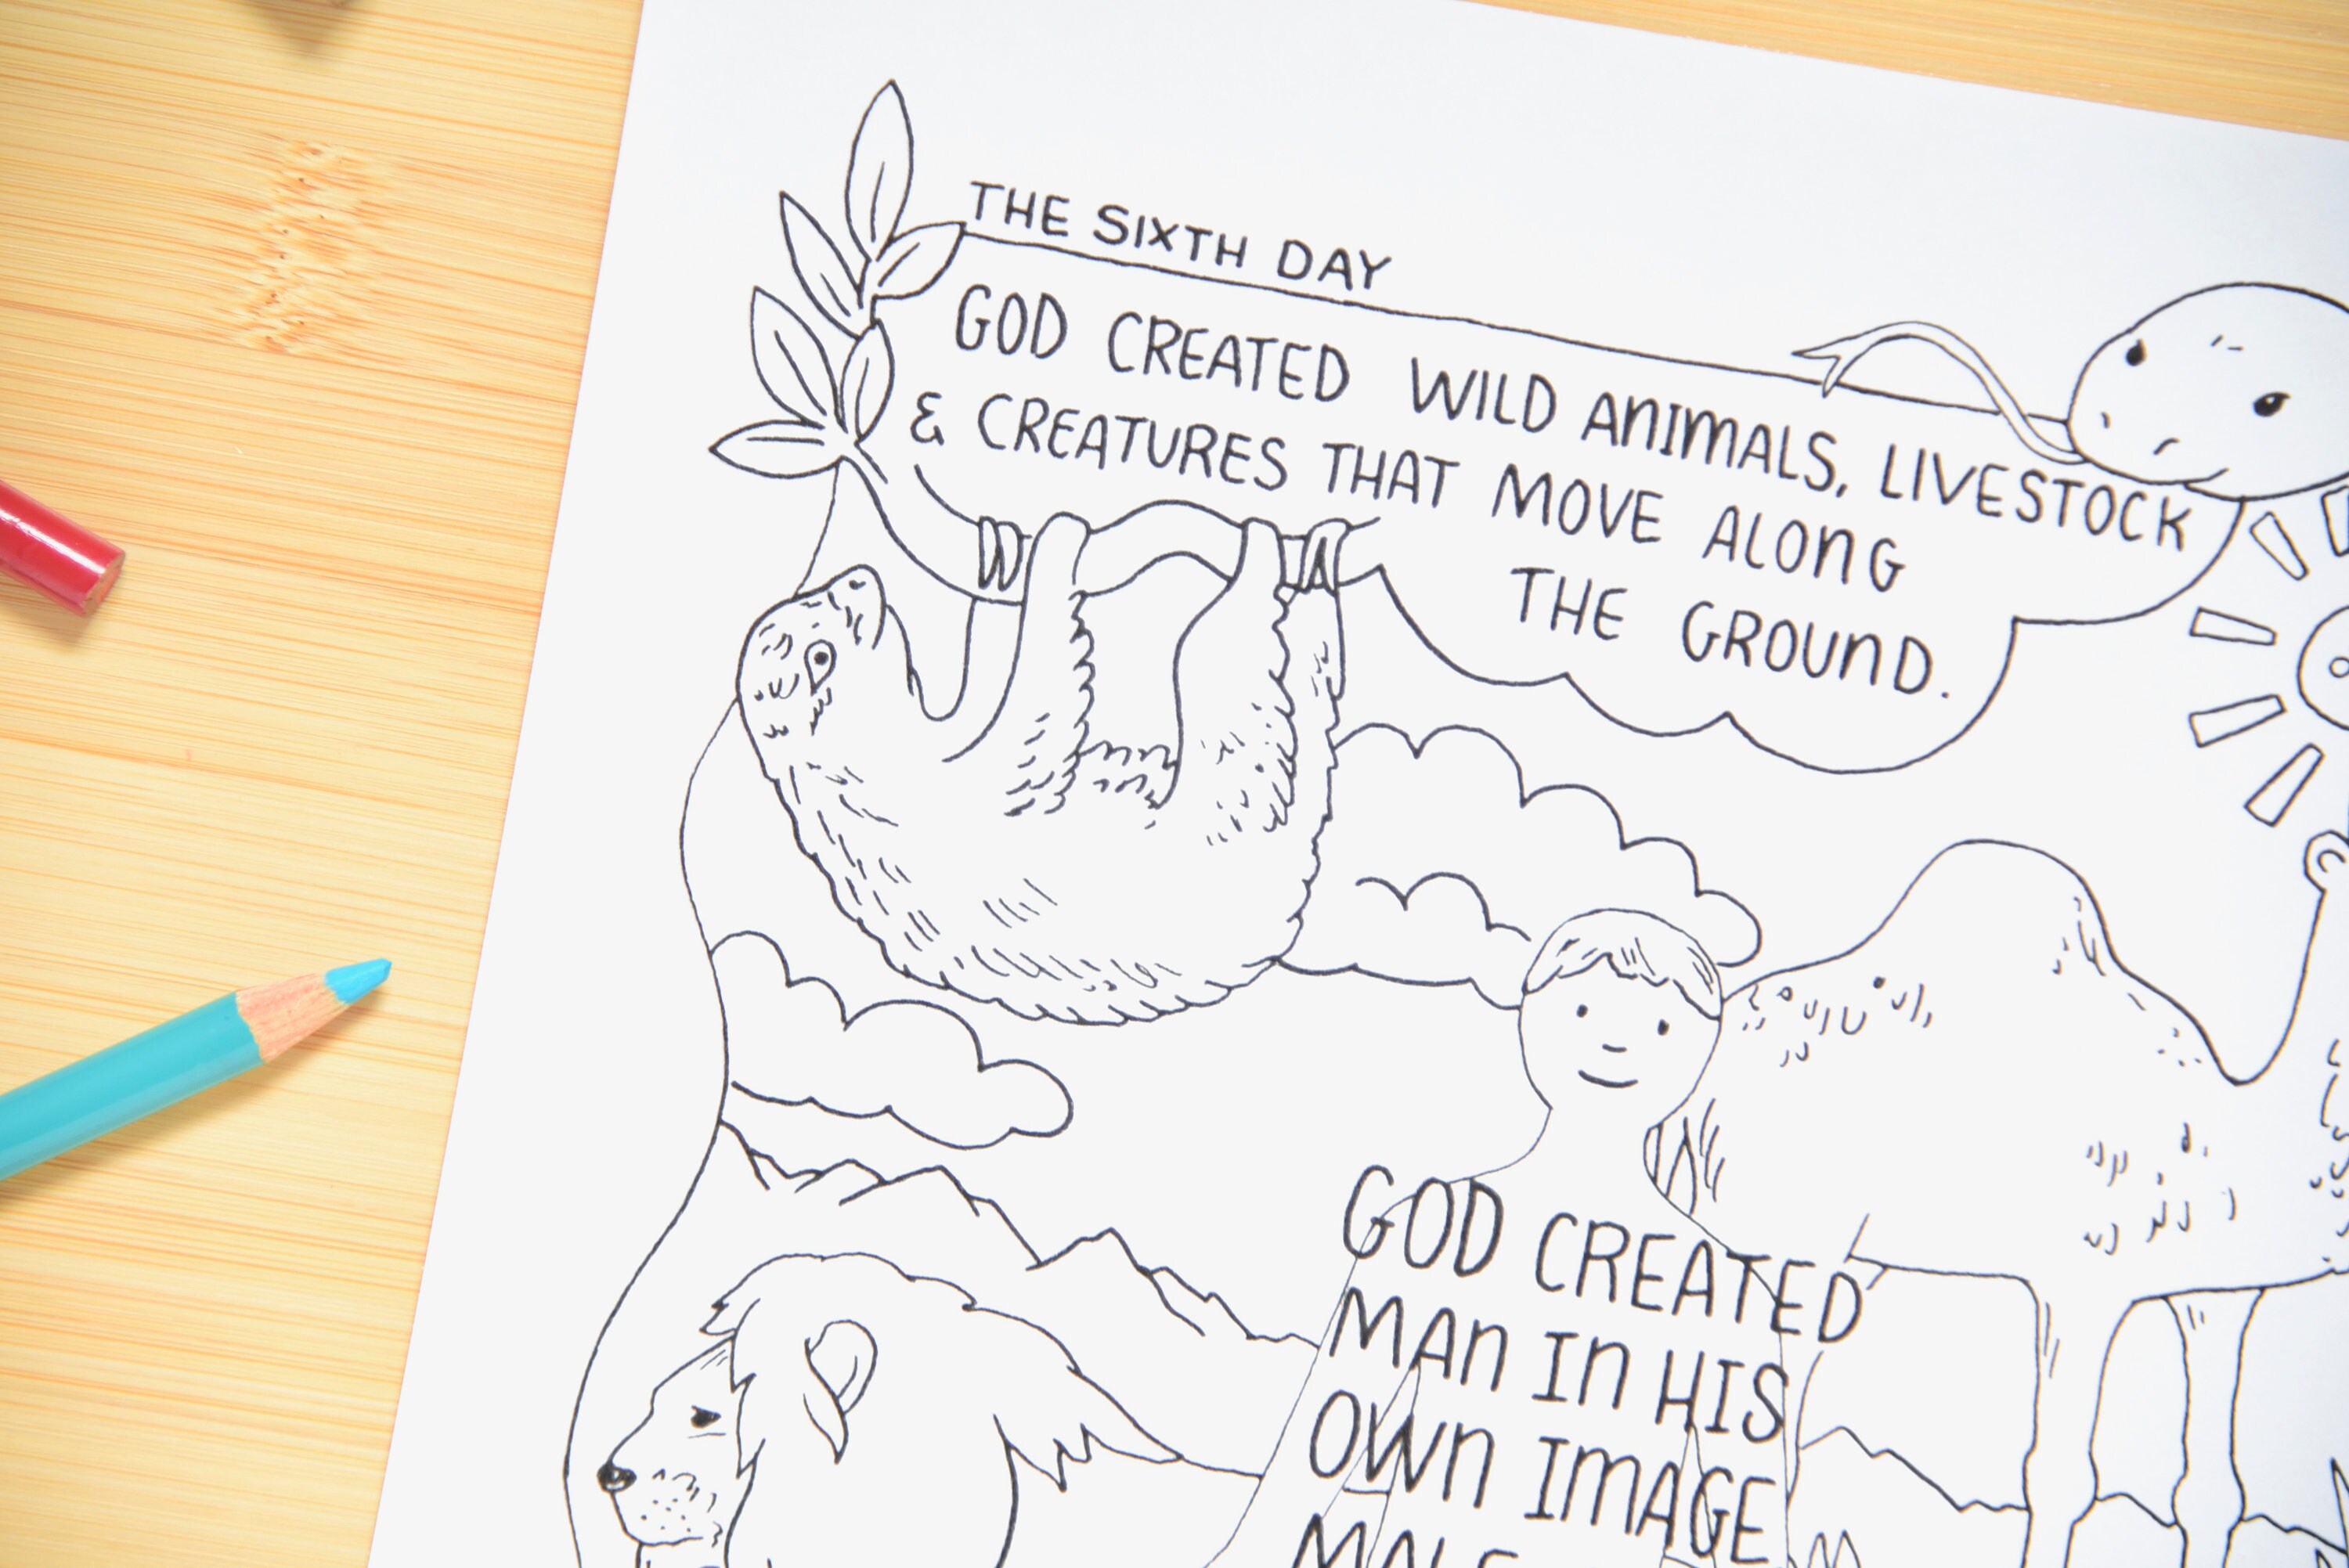 THE SIXTH DAY
GOD CREATED WILD ANIMALS, LIVESTOCK
& CREATURES THAT MOVE ALONG
THE GROUND.
GOD CREATED
MAN IN HIS
OWN IMAGE